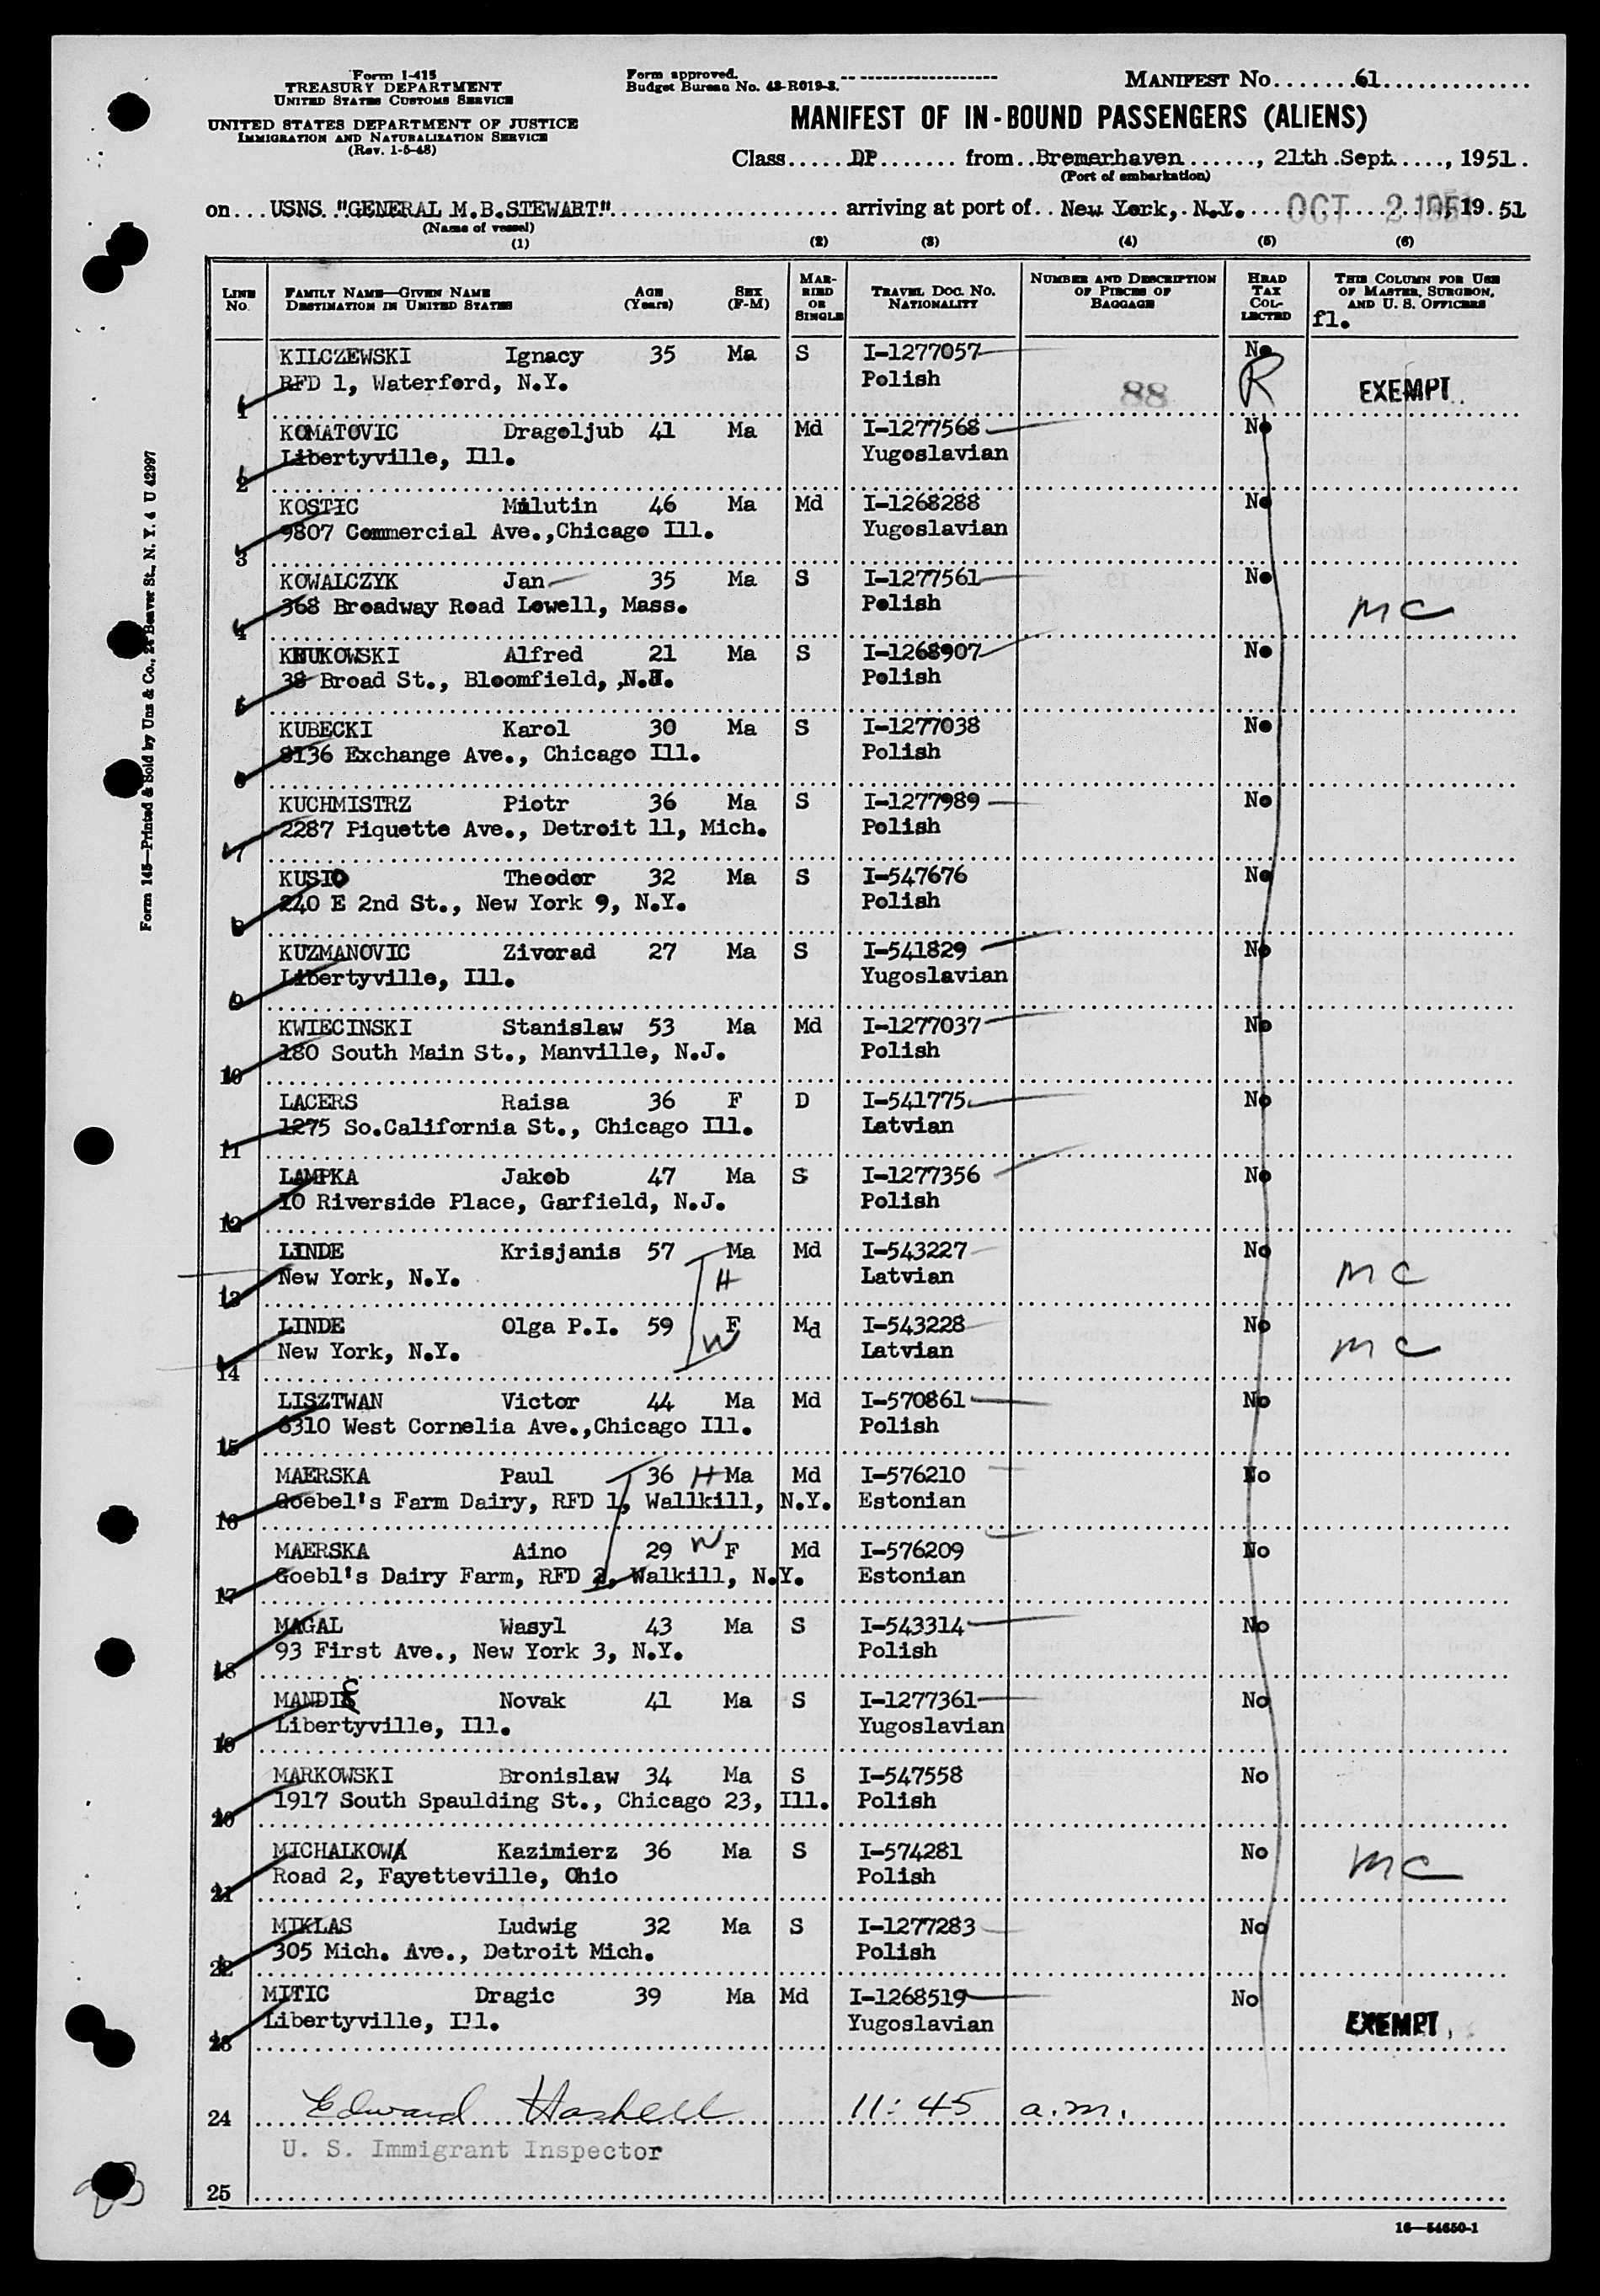 Form I-415
TREASURY DEPARTMENT
UNITED STATES CUSTOMS SERVICE
UNITED STATES DEPARTMENT OF JUSTICE
IMMIGRATION AND NATURALIZATION SERVICE
(Rev. 1-5-48)
Form approved.
Budget Bureau No. 43-R019-3.
MANIFEST No.......61..............
MANIFEST OF IN-BOUND PASSENGERS (ALIENS)
Class.....DP....... from..Bremerhaven......, 21th.Sept....., 1951.
(Port of embarkation)
on...USNS."GENERAL M.B.STEWART"..................... arriving at port of..New York,.N.Y.... OCT 2 1951, 19.51
(Name of vessel)
(1) (2) (3) (4) (5) (6)
LINE No. FAMILY NAME—GIVEN NAME DESTINATION IN UNITED STATES AGE (Years) SEX (F-M) MARRIED OR SINGLE TRAVEL DOC. NO. NATIONALITY NUMBER AND DESCRIPTION OF PIECES OF BAGGAGE HEAD TAX COLLECTED THIS COLUMN FOR USE OF MASTER, SURGEON, AND U. S. OFFICERS
fl.
KILCZEWSKI Ignacy 35 Ma S I-1277057 No
1 RFD 1, Waterford, N.Y. Polish 88 R EXEMPT
KOMATOVIC Dragoljub 41 Ma Md I-1277568 No
2 Libertyville, Ill. Yugoslavian
KOSTIC Milutin 46 Ma Md I-1268288 No
3 9807 Commercial Ave.,Chicago Ill. Yugoslavian
KOWALCZYK Jan 35 Ma S I-1277561 No
4 368 Broadway Road Lowell, Mass. Polish mc
KRUKOWSKI Alfred 21 Ma S I-1268907 No
5 38 Broad St., Bloomfield, N.J. Polish
KUBECKI Karol 30 Ma S I-1277038 No
6 8136 Exchange Ave., Chicago Ill. Polish
KUCHMISTRZ Piotr 36 Ma S I-1277989 No
7 2287 Piquette Ave., Detroit 11, Mich. Polish
KUSIO Theodor 32 Ma S I-547676 No
8 240 E 2nd St., New York 9, N.Y. Polish
KUZMANOVIC Zivorad 27 Ma S I-541829 No
9 Libertyville, Ill. Yugoslavian
KWIECINSKI Stanislaw 53 Ma Md I-1277037 No
10 180 South Main St., Manville, N.J. Polish
LACERS Raisa 36 F D I-541775 No
11 1275 So.California St., Chicago Ill. Latvian
LAMPKA Jakob 47 Ma S I-1277356 No
12 10 Riverside Place, Garfield, N.J. Polish
LINDE Krisjanis 57 Ma Md I-543227 No
13 New York, N.Y. H Latvian mc
LINDE Olga P.I. 59 F Md I-543228 No
14 New York, N.Y. W Latvian mc
LISZTWAN Victor 44 Ma Md I-570861 No
15 6310 West Cornelia Ave.,Chicago Ill. Polish
MAERSKA Paul 36 H Ma Md I-576210 No
16 Goebel's Farm Dairy, RFD 1, Wallkill, N.Y. Estonian
MAERSKA Aino 29 W F Md I-576209 No
17 Goebl's Dairy Farm, RFD 2, Walkill, N.Y. Estonian
MAGAL Wasyl 43 Ma S I-543314 No
18 93 First Ave., New York 3, N.Y. Polish
MANDIC Novak 41 Ma S I-1277361 No
19 Libertyville, Ill. Yugoslavian
MARKOWSKI Bronislaw 34 Ma S I-547558 No
20 1917 South Spaulding St., Chicago 23, Ill. Polish
MICHALKOWA Kazimierz 36 Ma S I-574281 No
21 Road 2, Fayetteville, Ohio Polish mc
MIKLAS Ludwig 32 Ma S I-1277283 No
22 305 Mich. Ave., Detroit Mich. Polish
MITIC Dragic 39 Ma Md I-1268519 No
23 Libertyville, Ill. Yugoslavian EXEMPT
24 Edward Hashell 11:45 a.m.
U. S. Immigrant Inspector
25
16—54650-1
Form 145—Printed & Sold by Unz & Co., 24 Beaver St., N. Y. 4 U 42997